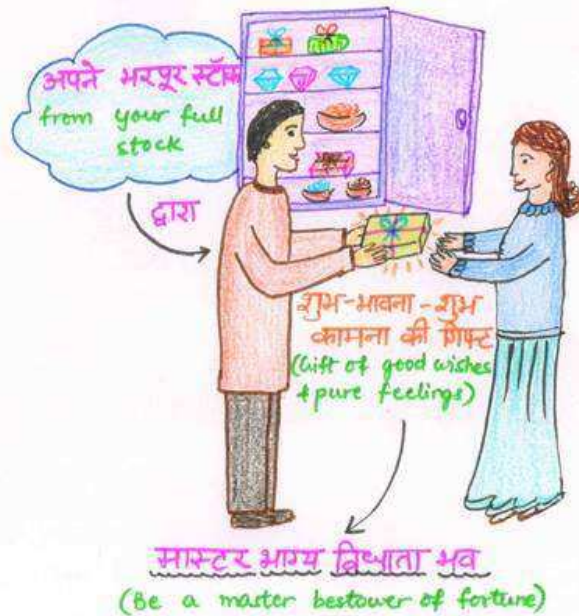 अपने भरपूर स्टॉक
from your full
stock
द्वारा
शुभ-भावना-शुभ
कामना की गिफ्ट
(Gift of good wishes
+ pure feelings)
मास्टर भाग्य विधाता भव
(Be a master bestower of fortune)